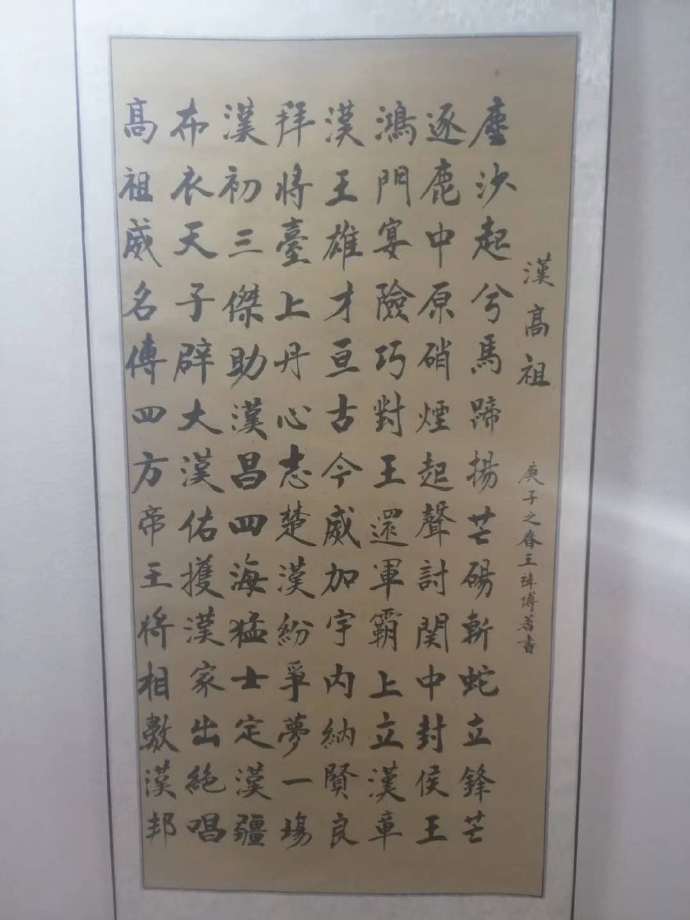 漢高祖
庚子之春王著書
塵沙起兮馬蹄揚芒碭斬蛇立鋒芒
逐鹿中原硝煙起聲討関中封侯王
鴻門宴險巧對王還軍霸上立漢車
漢王雄才亘古今威加宇内納賢良
拜將臺上丹心志楚漢紛爭夢一場
漢初三傑助漢昌四海猛士定漢疆
布衣天子辟大漢佑擭漢家出絶唱
髙祖威名傳四方帝王将相數漢邦